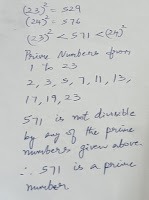 (23)² = 529
(24)² = 576
(23)² < 571 < (24)²
Prime Numbers from
1 to 23
2, 3, 5, 7, 11, 13,
17, 19, 23
571 is not divisible
by any of the prime
numbers given above
∴ 571 is a prime
number